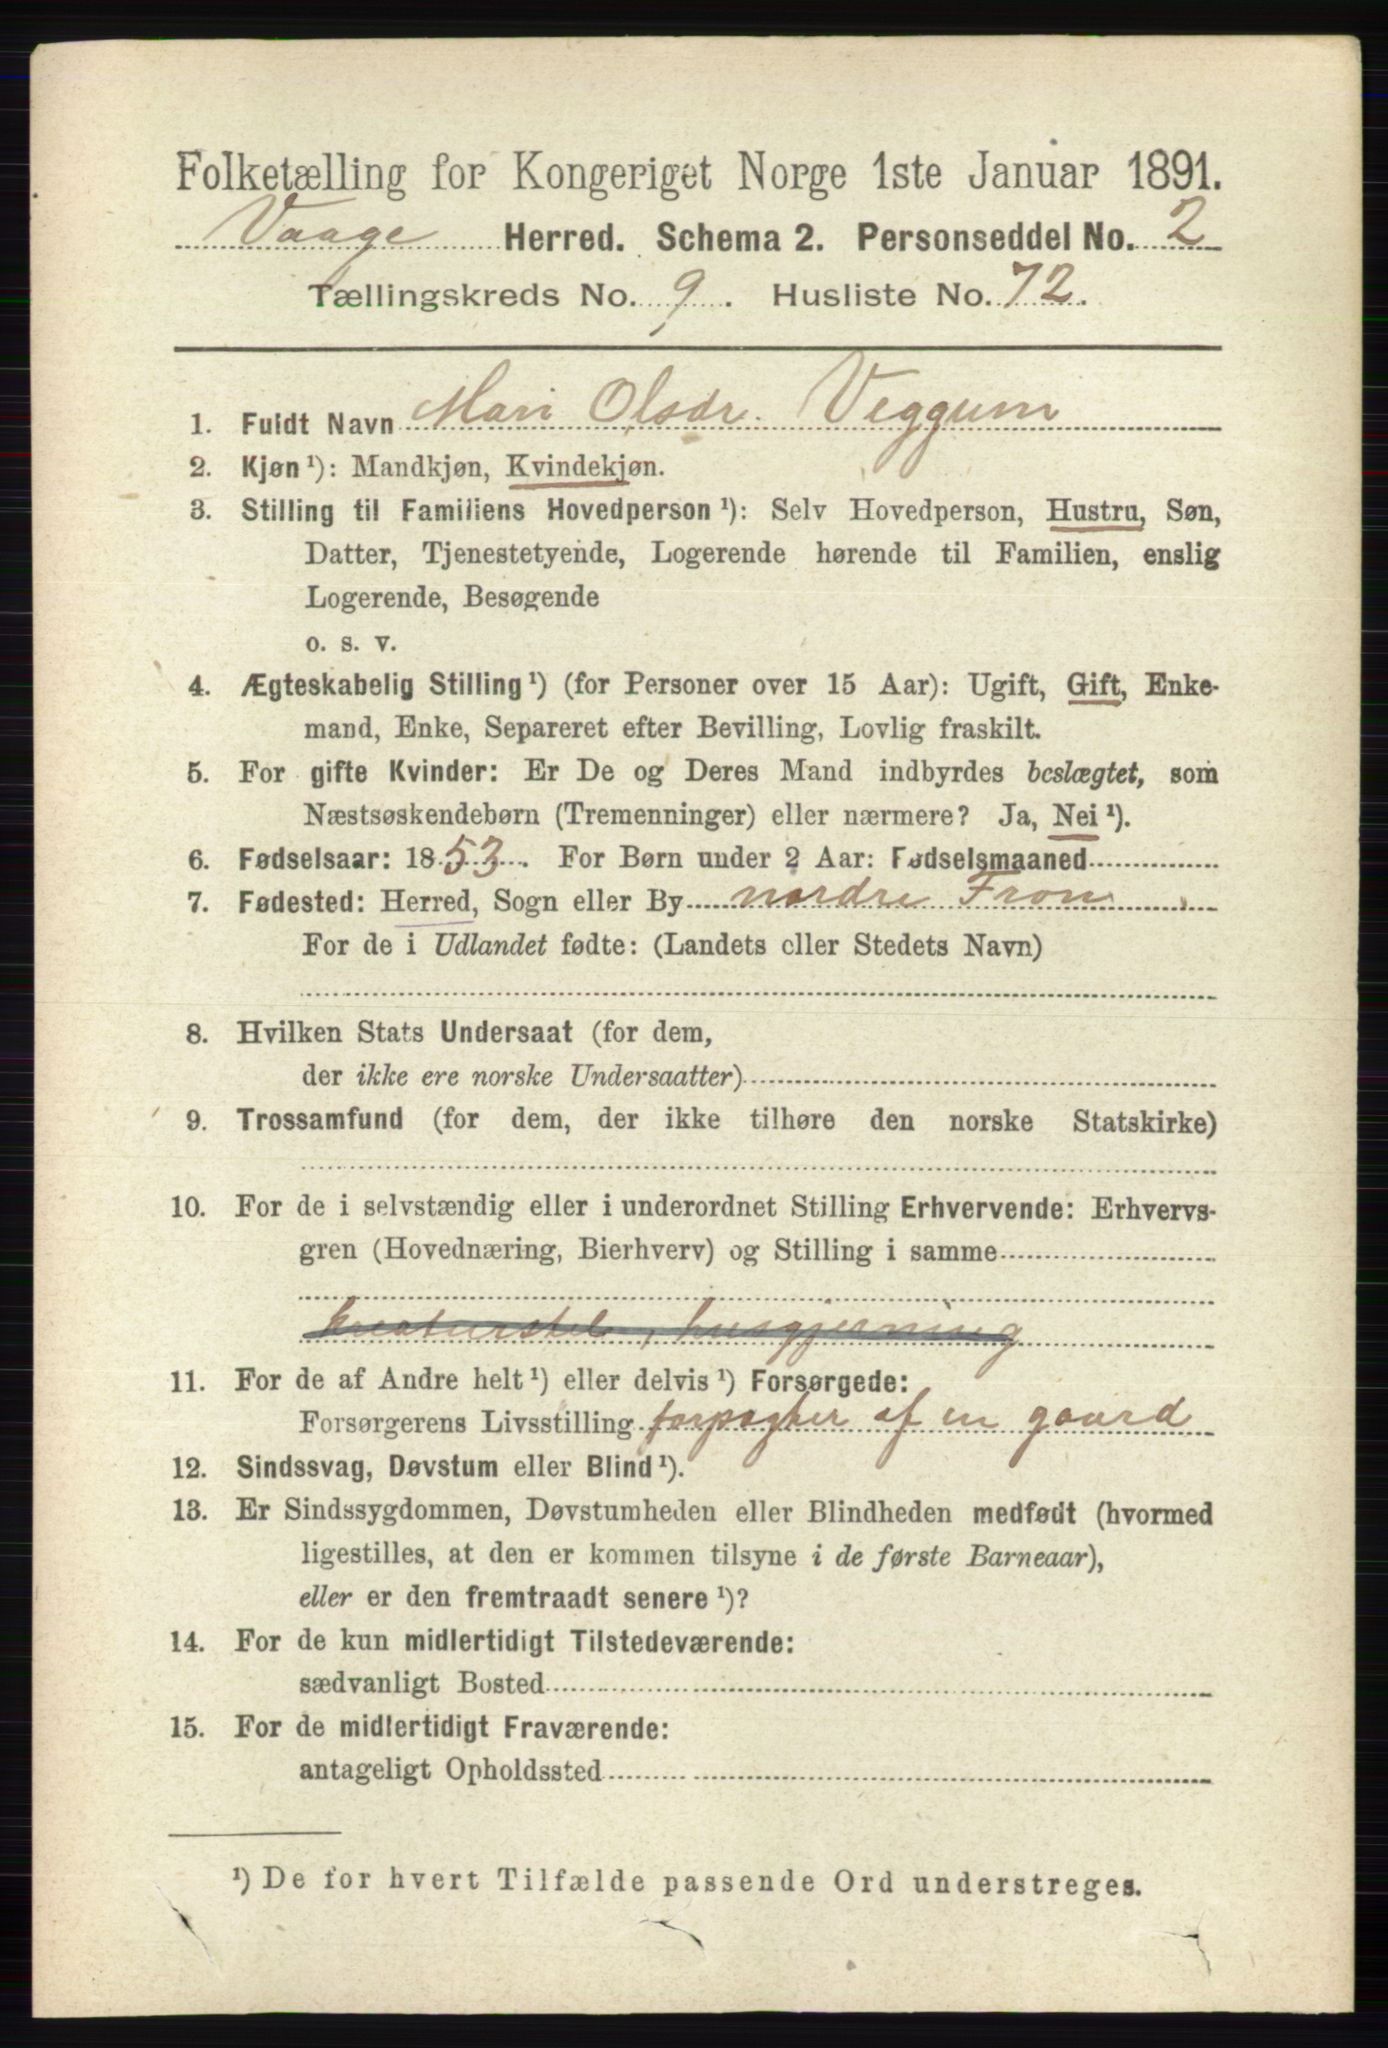 Folketælling for Kongeriget Norge 1ste Januar 1891.
Vaage Herred. Schema 2. Personseddel No. 2
Tællingskreds No. 9. Husliste No. 72.
1. Fuldt Navn Mari Olsdr. Veggum
2. Kjøn ¹): Mandkjøn, Kvindekjøn.
3. Stilling til Familiens Hovedperson ¹): Selv Hovedperson, Hustru, Søn,
Datter, Tjenestetyende, Logerende hørende til Familien, enslig
Logerende, Besøgende
o. s. v.
4. Ægteskabelig Stilling ¹) (for Personer over 15 Aar): Ugift, Gift, Enke-
mand, Enke, Separeret efter Bevilling, Lovlig fraskilt.
5. For gifte Kvinder: Er De og Deres Mand indbyrdes beslægtet, som
Næstsøskendebørn (Tremenninger) eller nærmere? Ja, Nei ¹).
6. Fødselsaar: 1853. For Børn under 2 Aar: Fødselsmaaned
7. Fødested: Herred, Sogn eller By nordre Fron
For de i Udlandet fødte: (Landets eller Stedets Navn)
8. Hvilken Stats Undersaat (for dem,
der ikke ere norske Undersaatter)
9. Trossamfund (for dem, der ikke tilhøre den norske Statskirke)
10. For de i selvstændig eller i underordnet Stilling Erhvervende: Erhvervs-
gren (Hovednæring, Bierhverv) og Stilling i samme
kreaturstel, husgjerning
11. For de af Andre helt ¹) eller delvis ¹) Forsørgede:
Forsørgerens Livsstilling forpagter af en gaard
12. Sindssvag, Døvstum eller Blind ¹).
13. Er Sindssygdommen, Døvstumheden eller Blindheden medfødt (hvormed
ligestilles, at den er kommen tilsyne i de første Barneaar),
eller er den fremtraadt senere ¹)?
14. For de kun midlertidigt Tilstedeværende:
sædvanligt Bosted
15. For de midlertidigt Fraværende:
antageligt Opholdssted
¹) De for hvert Tilfælde passende Ord understreges.